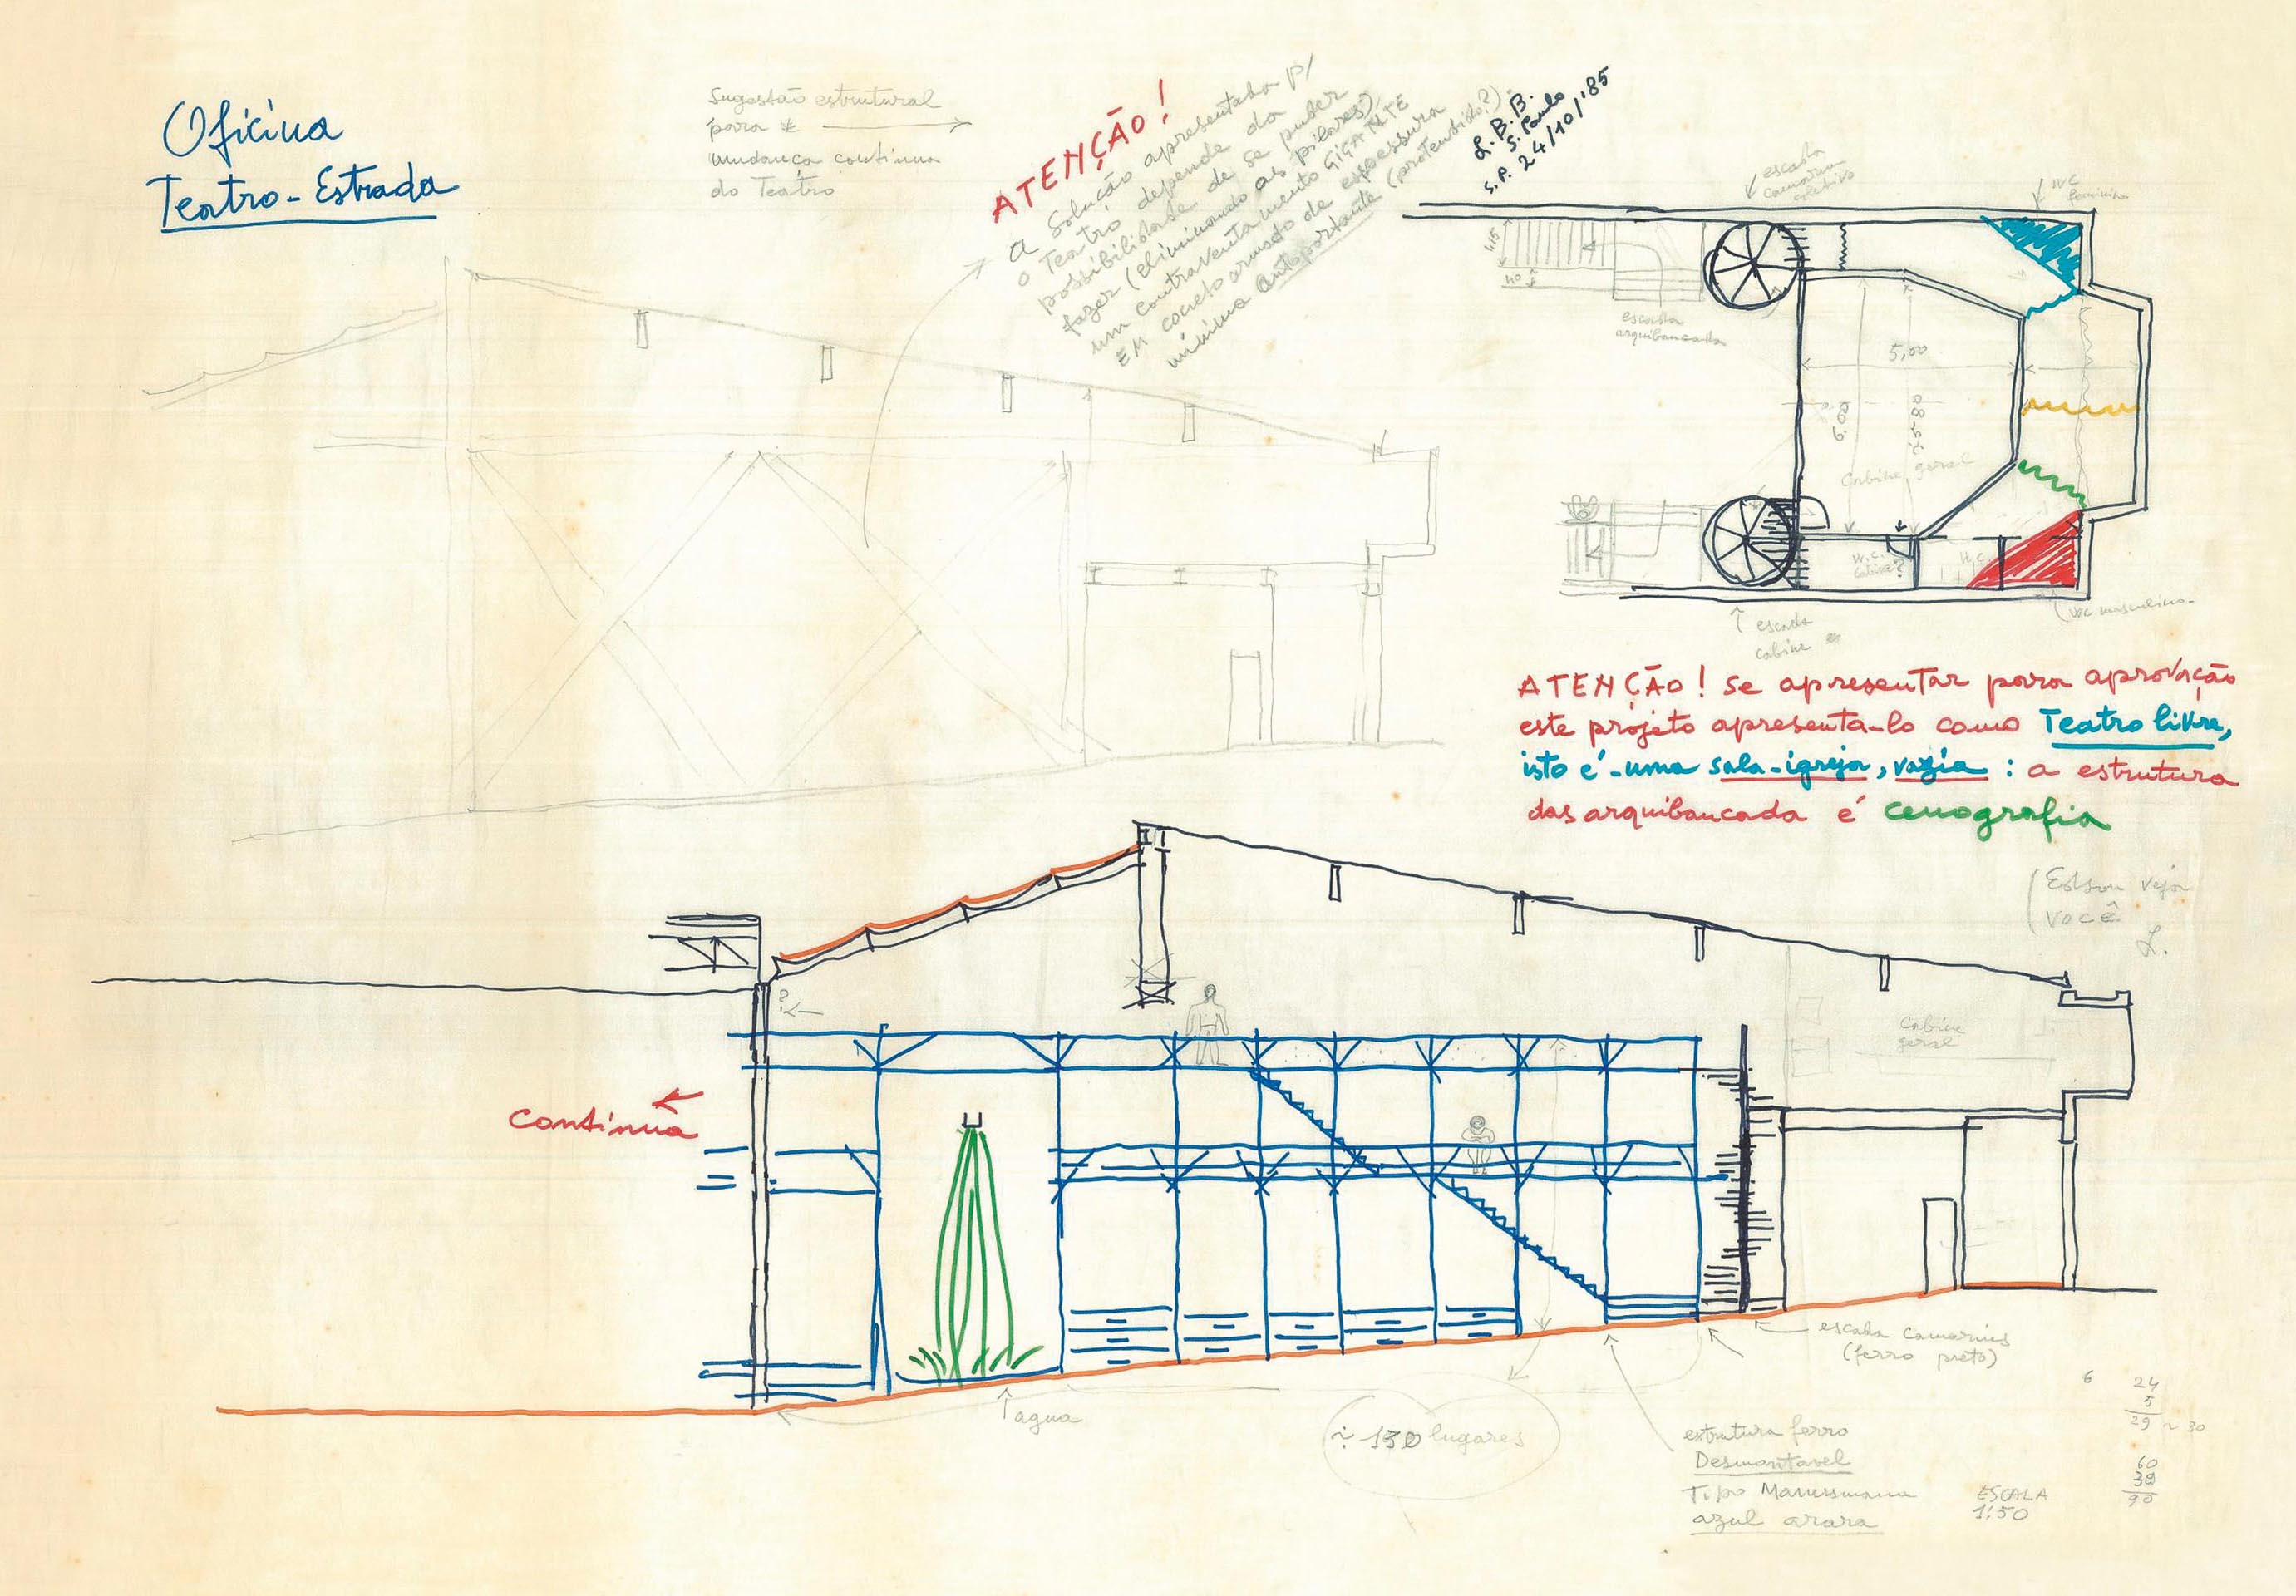 Oficina
Teatro-Estrada
Sugestão estrutural
para
mudança continua
do Teatro
ATENÇÃO!
a Solução apresentada p/
o Teatro depende da
possibilidade de se puder
fazer (eliminando as pilares)
um contraventamento GIGANTE
EM cocreto armado de espessura
mínima autoportante (protendido?)
L.B.B.
S. Paulo
S.P. 24/10/'85
escada
camarim
coletivo
WC
feminino
1,15
40
escada
arquibancada
5,00
6,00
Cabine geral
W.C.
cabine?
W.C.
escada
cabine
WC masculino
ATENÇÃO! Se apresentar para aprovação
este projeto apresenta-lo como Teatro livre,
isto é - uma sala-igreja, vazia : a estrutura
das arquibancada é cenografia
(Edson veja
você
L.
?
cabine
geral
continua
escada camarins
(ferro preto)
agua
~ 130 lugares
estrutura ferro
Desmontavel
Tipo Manessmann
azul arara
ESCALA
1:50
6
24
5
29 ~ 30
60
30
90